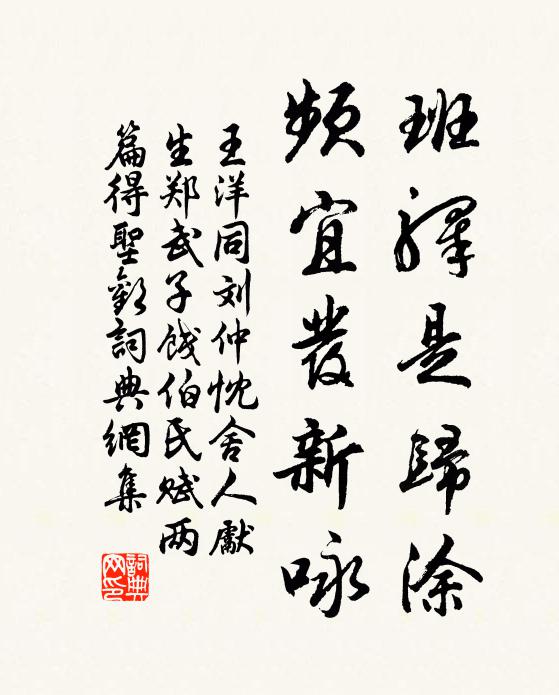 班驛是歸涂
頻宜發新咏
王洋同刘仲忱舍人獻
生郑武子餞伯氏赋两
篇得聖勸詞典網集
詞典
网印